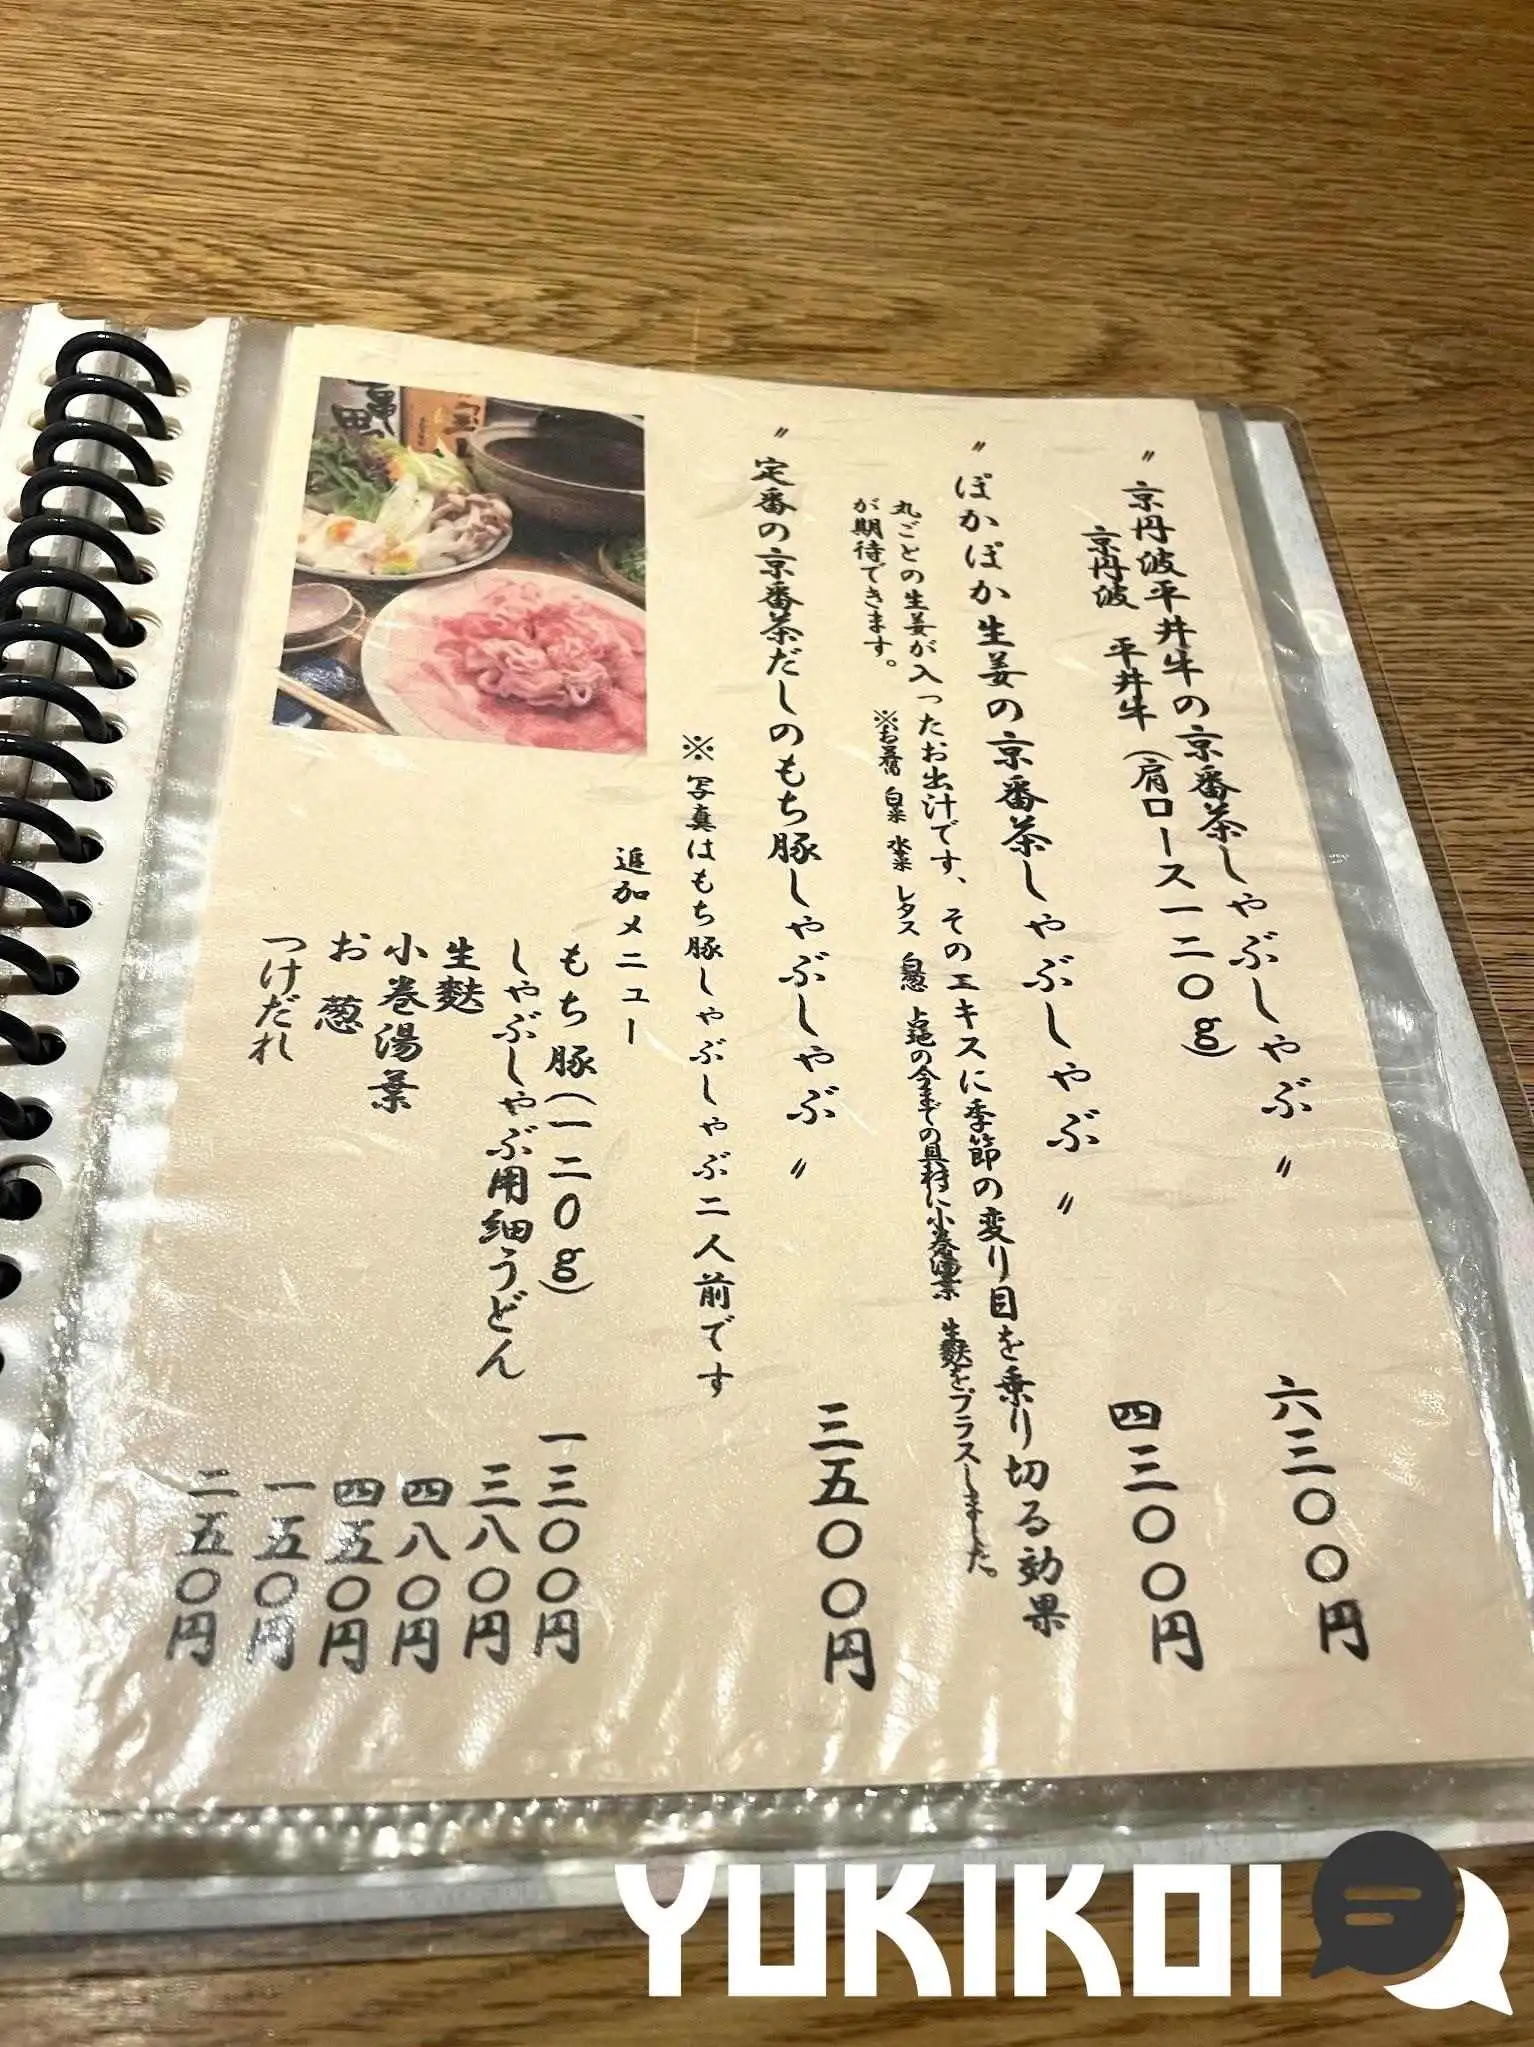 〝京丹波平井牛の京番茶しゃぶしゃぶ〟
六三〇〇円
京丹波 平井牛（肩ロース一二〇g）
〝ぽかぽか生姜の京番茶しゃぶしゃぶ〟
四三〇〇円
丸ごとの生姜が入ったお出汁です、そのエキスに季節の変り目を乗り切る効果
が期待できます。
※お豆腐 白菜 水菜 レタス 白葱 占地の今までの具材に小巻湯葉 生麩をプラスしました。
〝定番の京番茶だしのもち豚しゃぶしゃぶ〟
三五〇〇円
※写真はもち豚しゃぶしゃぶ二人前です
追加メニュー
もち豚（一二〇g） 一三〇〇円
しゃぶしゃぶ用細うどん 三八〇円
生麩 四八〇円
小巻湯葉 四五〇円
お葱 一五〇円
つけだれ 二五〇円
YUKIKOI